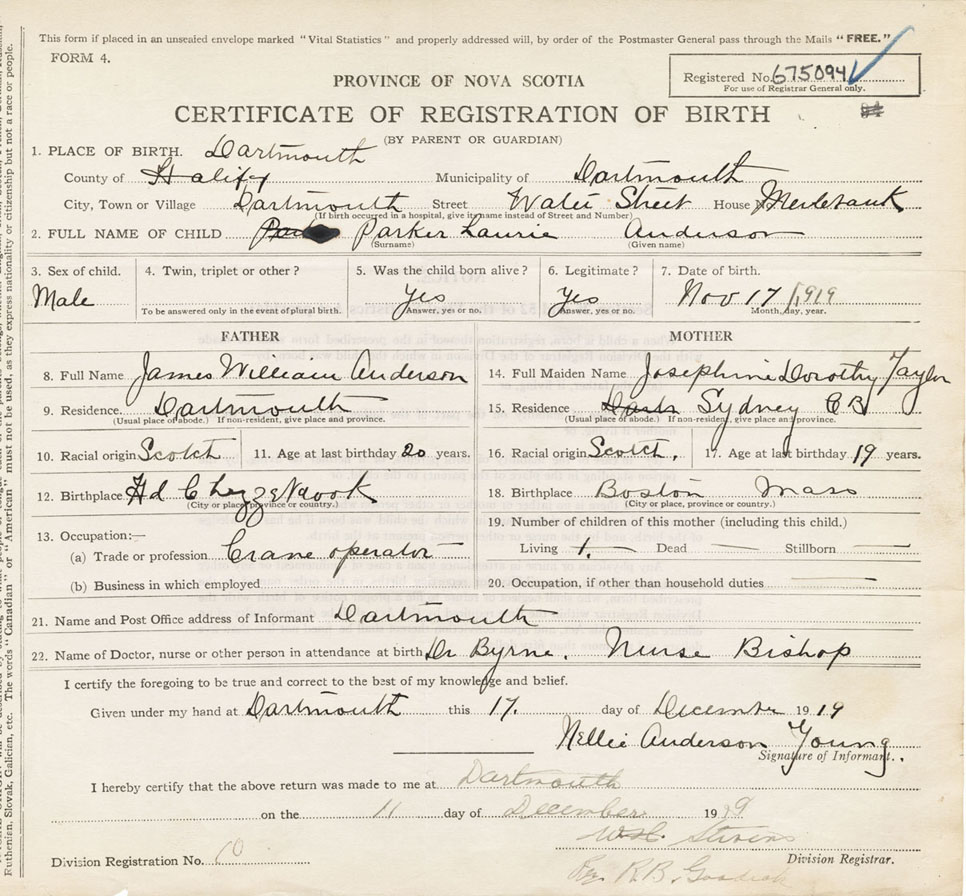 This form if placed in an unsealed envelope marked "Vital Statistics" and properly addressed will, by order of the Postmaster General pass through the Mails "FREE."
FORM 4.
Registered No. 675094
For use of Registrar General only.
PROVINCE OF NOVA SCOTIA
CERTIFICATE OF REGISTRATION OF BIRTH
(BY PARENT OR GUARDIAN)
1. PLACE OF BIRTH. Dartmouth
County of Halifax Municipality of Dartmouth
City, Town or Village Dartmouth Street Water Street House No
(If birth occurred in a hospital, give its name instead of Street and Number)
2. FULL NAME OF CHILD Parker Laurie Anderson
(Surname) (Given name)
3. Sex of child. 4. Twin, triplet or other? 5. Was the child born alive? 6. Legitimate? 7. Date of birth.
Male Yes Yes Nov 17 1919
To be answered only in the event of plural birth. Answer, yes or no. Answer, yes or no. Month, day, year.
FATHER MOTHER
8. Full Name James William Anderson 14. Full Maiden Name Josephine Dorothy Taylor
9. Residence. Dartmouth 15. Residence Sydney C B
(Usual place of abode.) If non-resident, give place and province. (Usual place of abode.) If non-resident, give place and province.
10. Racial origin Scotch 11. Age at last birthday 20 years. 16. Racial origin Scotch. 17. Age at last birthday 19 years.
12. Birthplace Hd Chezzetcook 18. Birthplace Boston Mass
(City or place, province or country.) (City or place, province or country.)
13. Occupation:— 19. Number of children of this mother (including this child.)
(a) Trade or profession Crane operator Living 1. Dead — Stillborn —
(b) Business in which employed 20. Occupation, if other than household duties —
21. Name and Post Office address of Informant Dartmouth
22. Name of Doctor, nurse or other person in attendance at birth Dr Byrne. Nurse Bishop
I certify the foregoing to be true and correct to the best of my knowledge and belief.
Given under my hand at Dartmouth this 17. day of December 1919
Nellie Anderson Young
Signature of Informant.
I hereby certify that the above return was made to me at Dartmouth
on the 11 day of December 19
Stevens
Division Registrar.
Division Registration No. 10
R.B.
Ruthenian, Slovak, Galician, etc. The words "Canadian" or "American" must not be used, as they express nationality or citizenship but not a race or people.